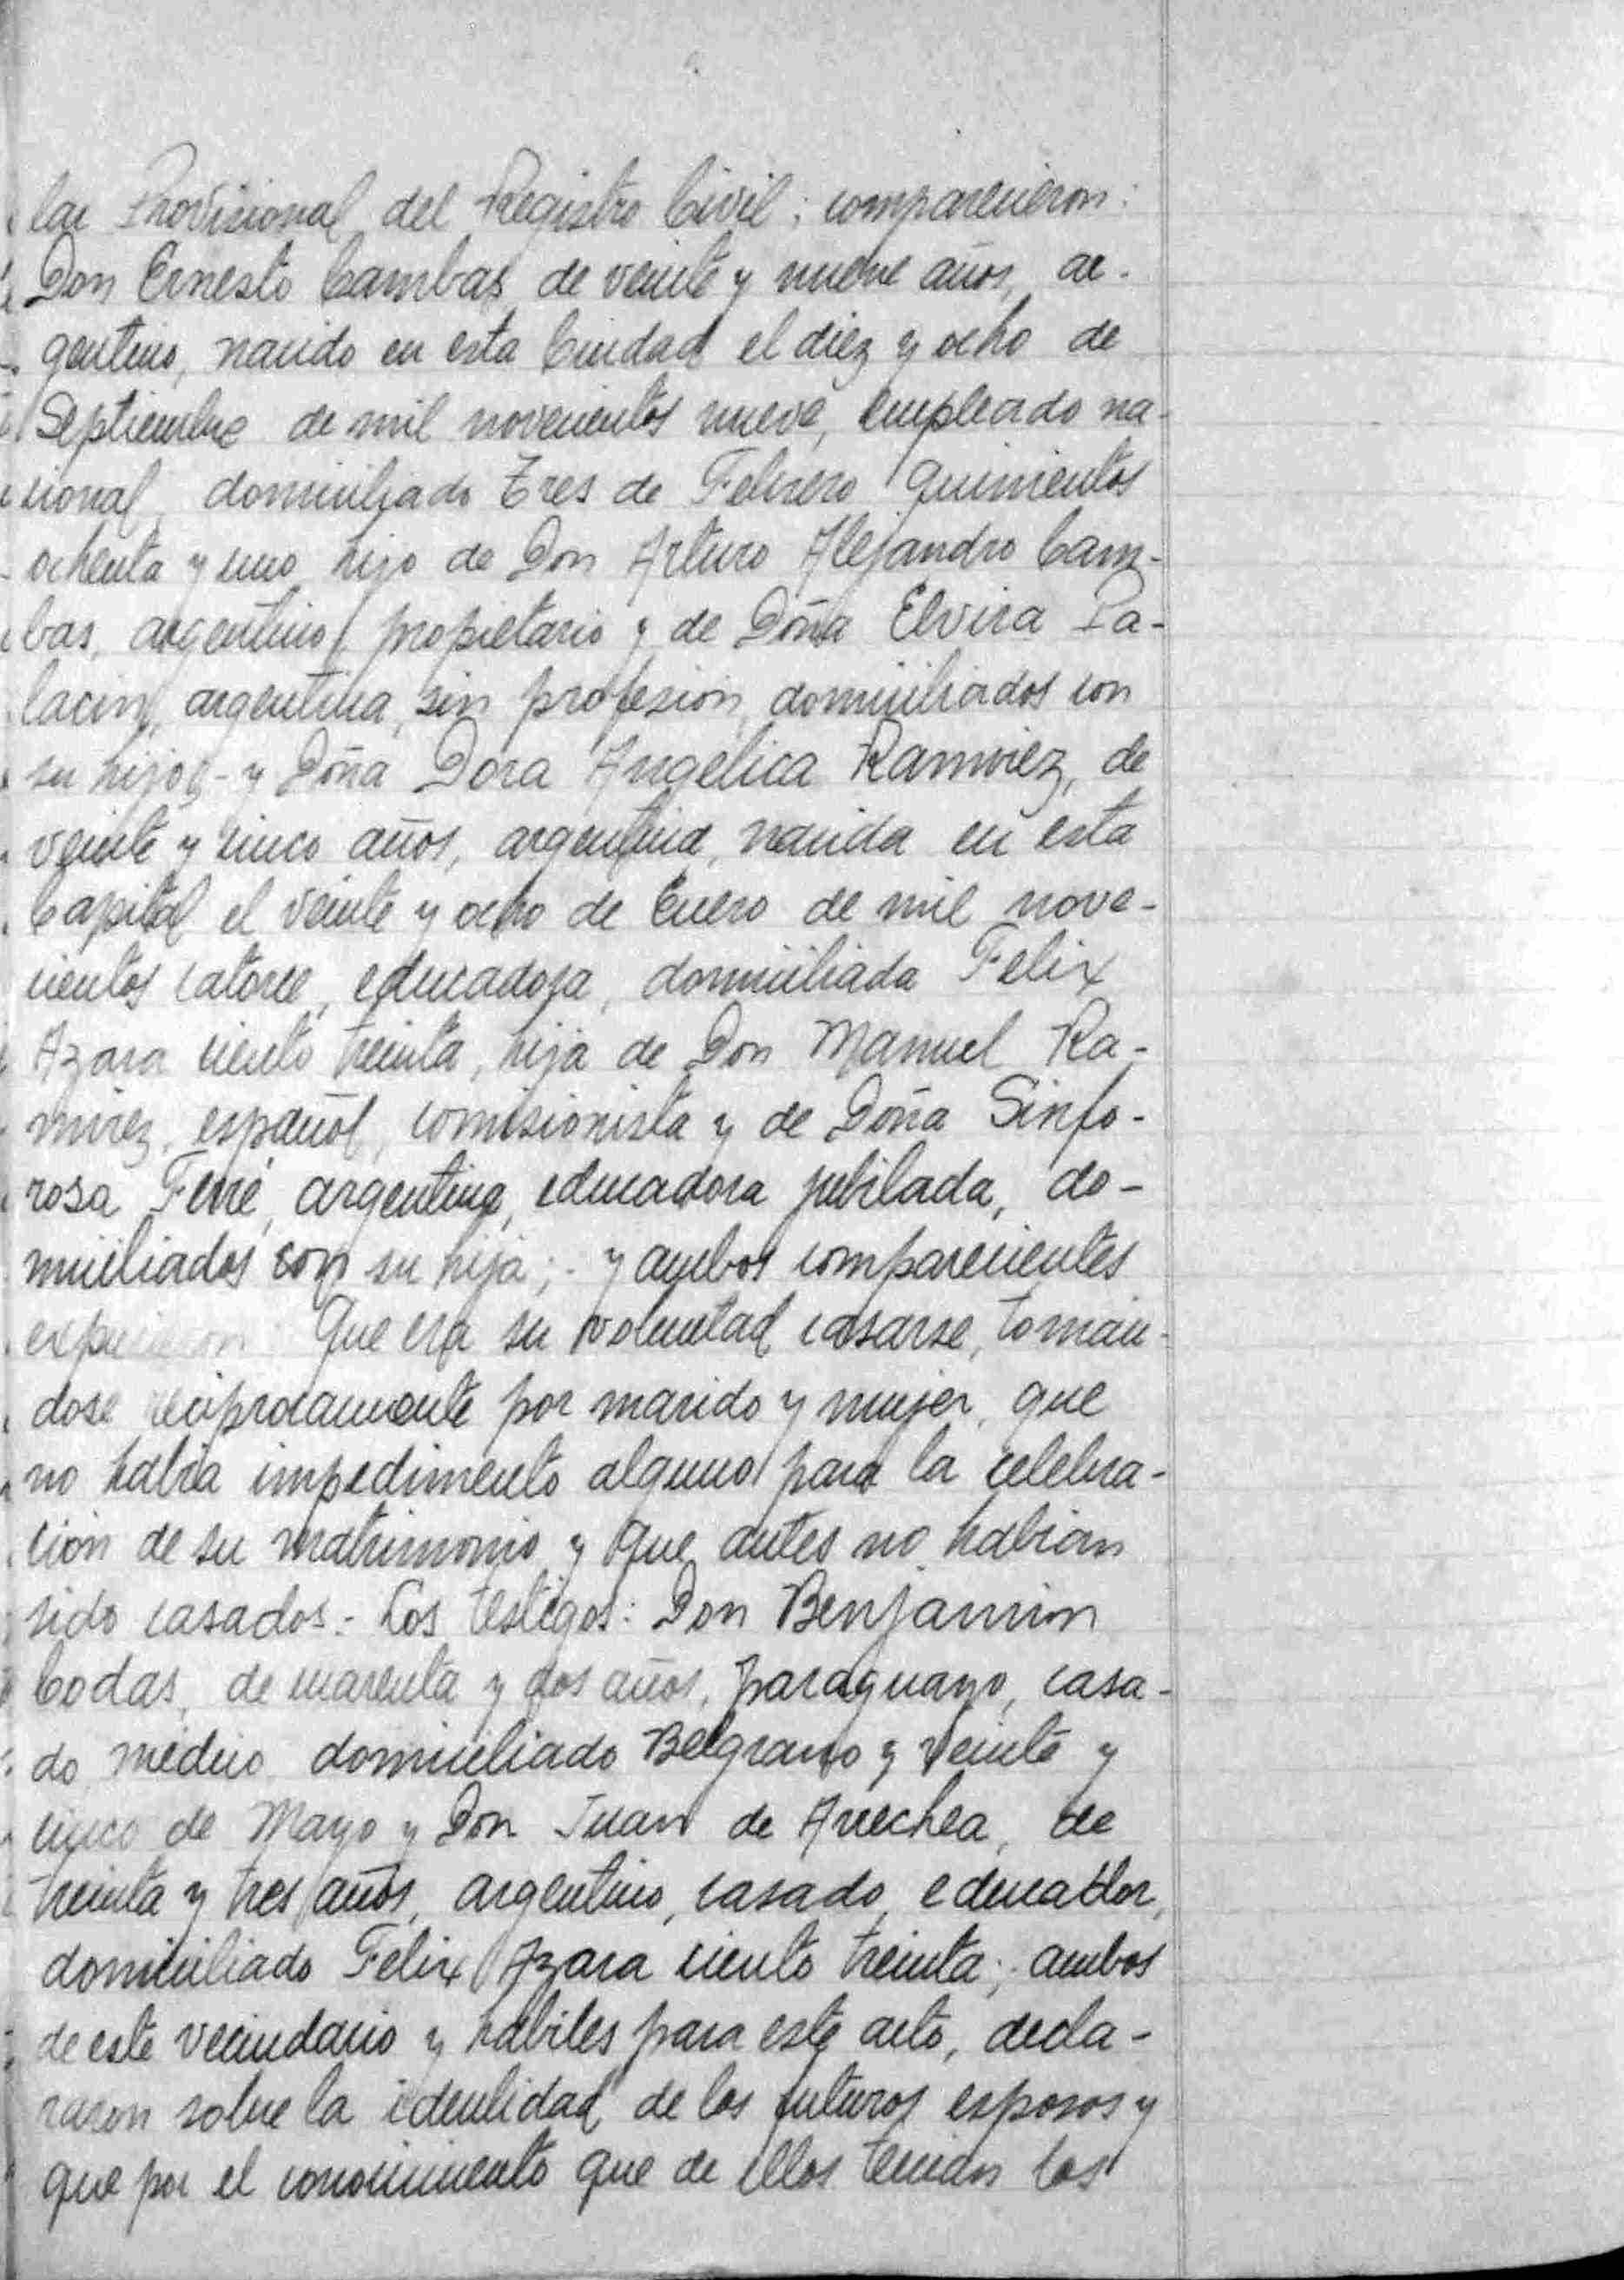 lar Provisional del Registro Civil; comparecieron:
Don Ernesto Cambas, de veinte y nueve años, ar-
gentino, nacido en esta Ciudad el diez y ocho de
Septiembre de mil novecientos nueve, empleado na-
cional, domiciliado Tres de Febrero quinientos
ochenta y uno, hijo de Don Arturo Alejandro Cam-
bas, argentino, propietario y de Doña Elvira Pa-
lacin, argentina, sin profesion, domiciliados con
su hijo;- y Doña Dora Angélica Ramirez, de
veinte y cinco años, argentina, nacida en esta
Capital el veinte y ocho de Enero de mil nove-
cientos catorce, educadora, domiciliada Felix
Azara ciento treinta, hija de Don Manuel Ra-
mirez, español, comisionista y de Doña Sinfo-
rosa Ferré, argentina, educadora jubilada, do-
miciliados con su hija;- y ambos comparecientes
Que era su voluntad casarse, tomán-
dose reciprocamente por marido y mujer, que
no habia impedimento alguno para la celebra-
ción de su matrimonio y que antes no habian
sido casados.- Los testigos: Don Benjamin
Codas, de cuarenta y dos años, paraguayo, casa-
do, médico, domiciliado Belgrano y veinte y
cinco de Mayo y Don Juan de Arrechea, de
treinta y tres años, argentino, casado, educador,
domiciliado Felix Azara ciento treinta; ambos
de este vecindario y habiles para este acto, decla-
raron sobre la identidad de los futuros esposos y
que por el conocimiento que de ellos tenian los